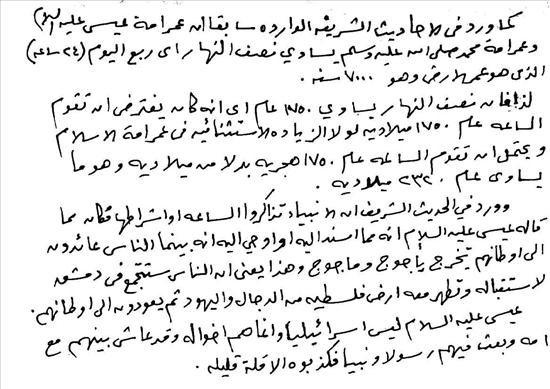 كما ورد فى الاحاديث الشريفه الوارده سابقا ان عمر امة عيسى عليه السلام
وعمر امة محمد صلى الله عليه وسلم يساوي نصف النهار اى ربع اليوم (٢٤ ساعه)
الذى هو عمر الارض وهو ٧٠٠٠ سنه .
لذا فان نصف النهار يساوي ١٧٥٠ عام اى انه كان يفترض ان تقوم
الساعه عام ١٧٥٠ ميلاديه لولا الزياده الاستثنائيه فى عمر امة الاسلام
ويحتمل ان تقوم الساعه عام ١٧٥٠ هجريه بدلا من ميلاديه وهو ما
يساوى عام ٢٣٢٠ ميلاديه .
وورد في الحديث الشريف ان الانبياء تذاكروا الساعه او اشراطها فكان مما
قاله عيسى عليه السلام انه مما اسند اليه او اوحي اليه انه بينما الناس عائدون
الى اوطانهم يخرج يأجوج وماجوج وهذا يعنى ان الناس ستتجمع فى دمشق
لاستقباله وتطهر معه ارض فلسطين من الدجال واليهود ثم يعودون الى اوطانهم .
عيسى عليه السلام ليس اسرائيليا وانما هم اخواله وقد عاش بينهم مع
امه وبعث فيهم رسولا ونبيا فكذبوه الا قلة قليله .